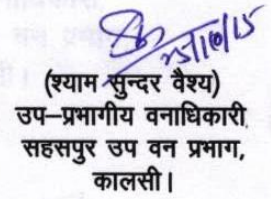 25/10/15
(श्याम सुन्दर वैश्य)
उप–प्रभागीय वनाधिकारी
सहसपुर उप वन प्रभाग,
कालसी।